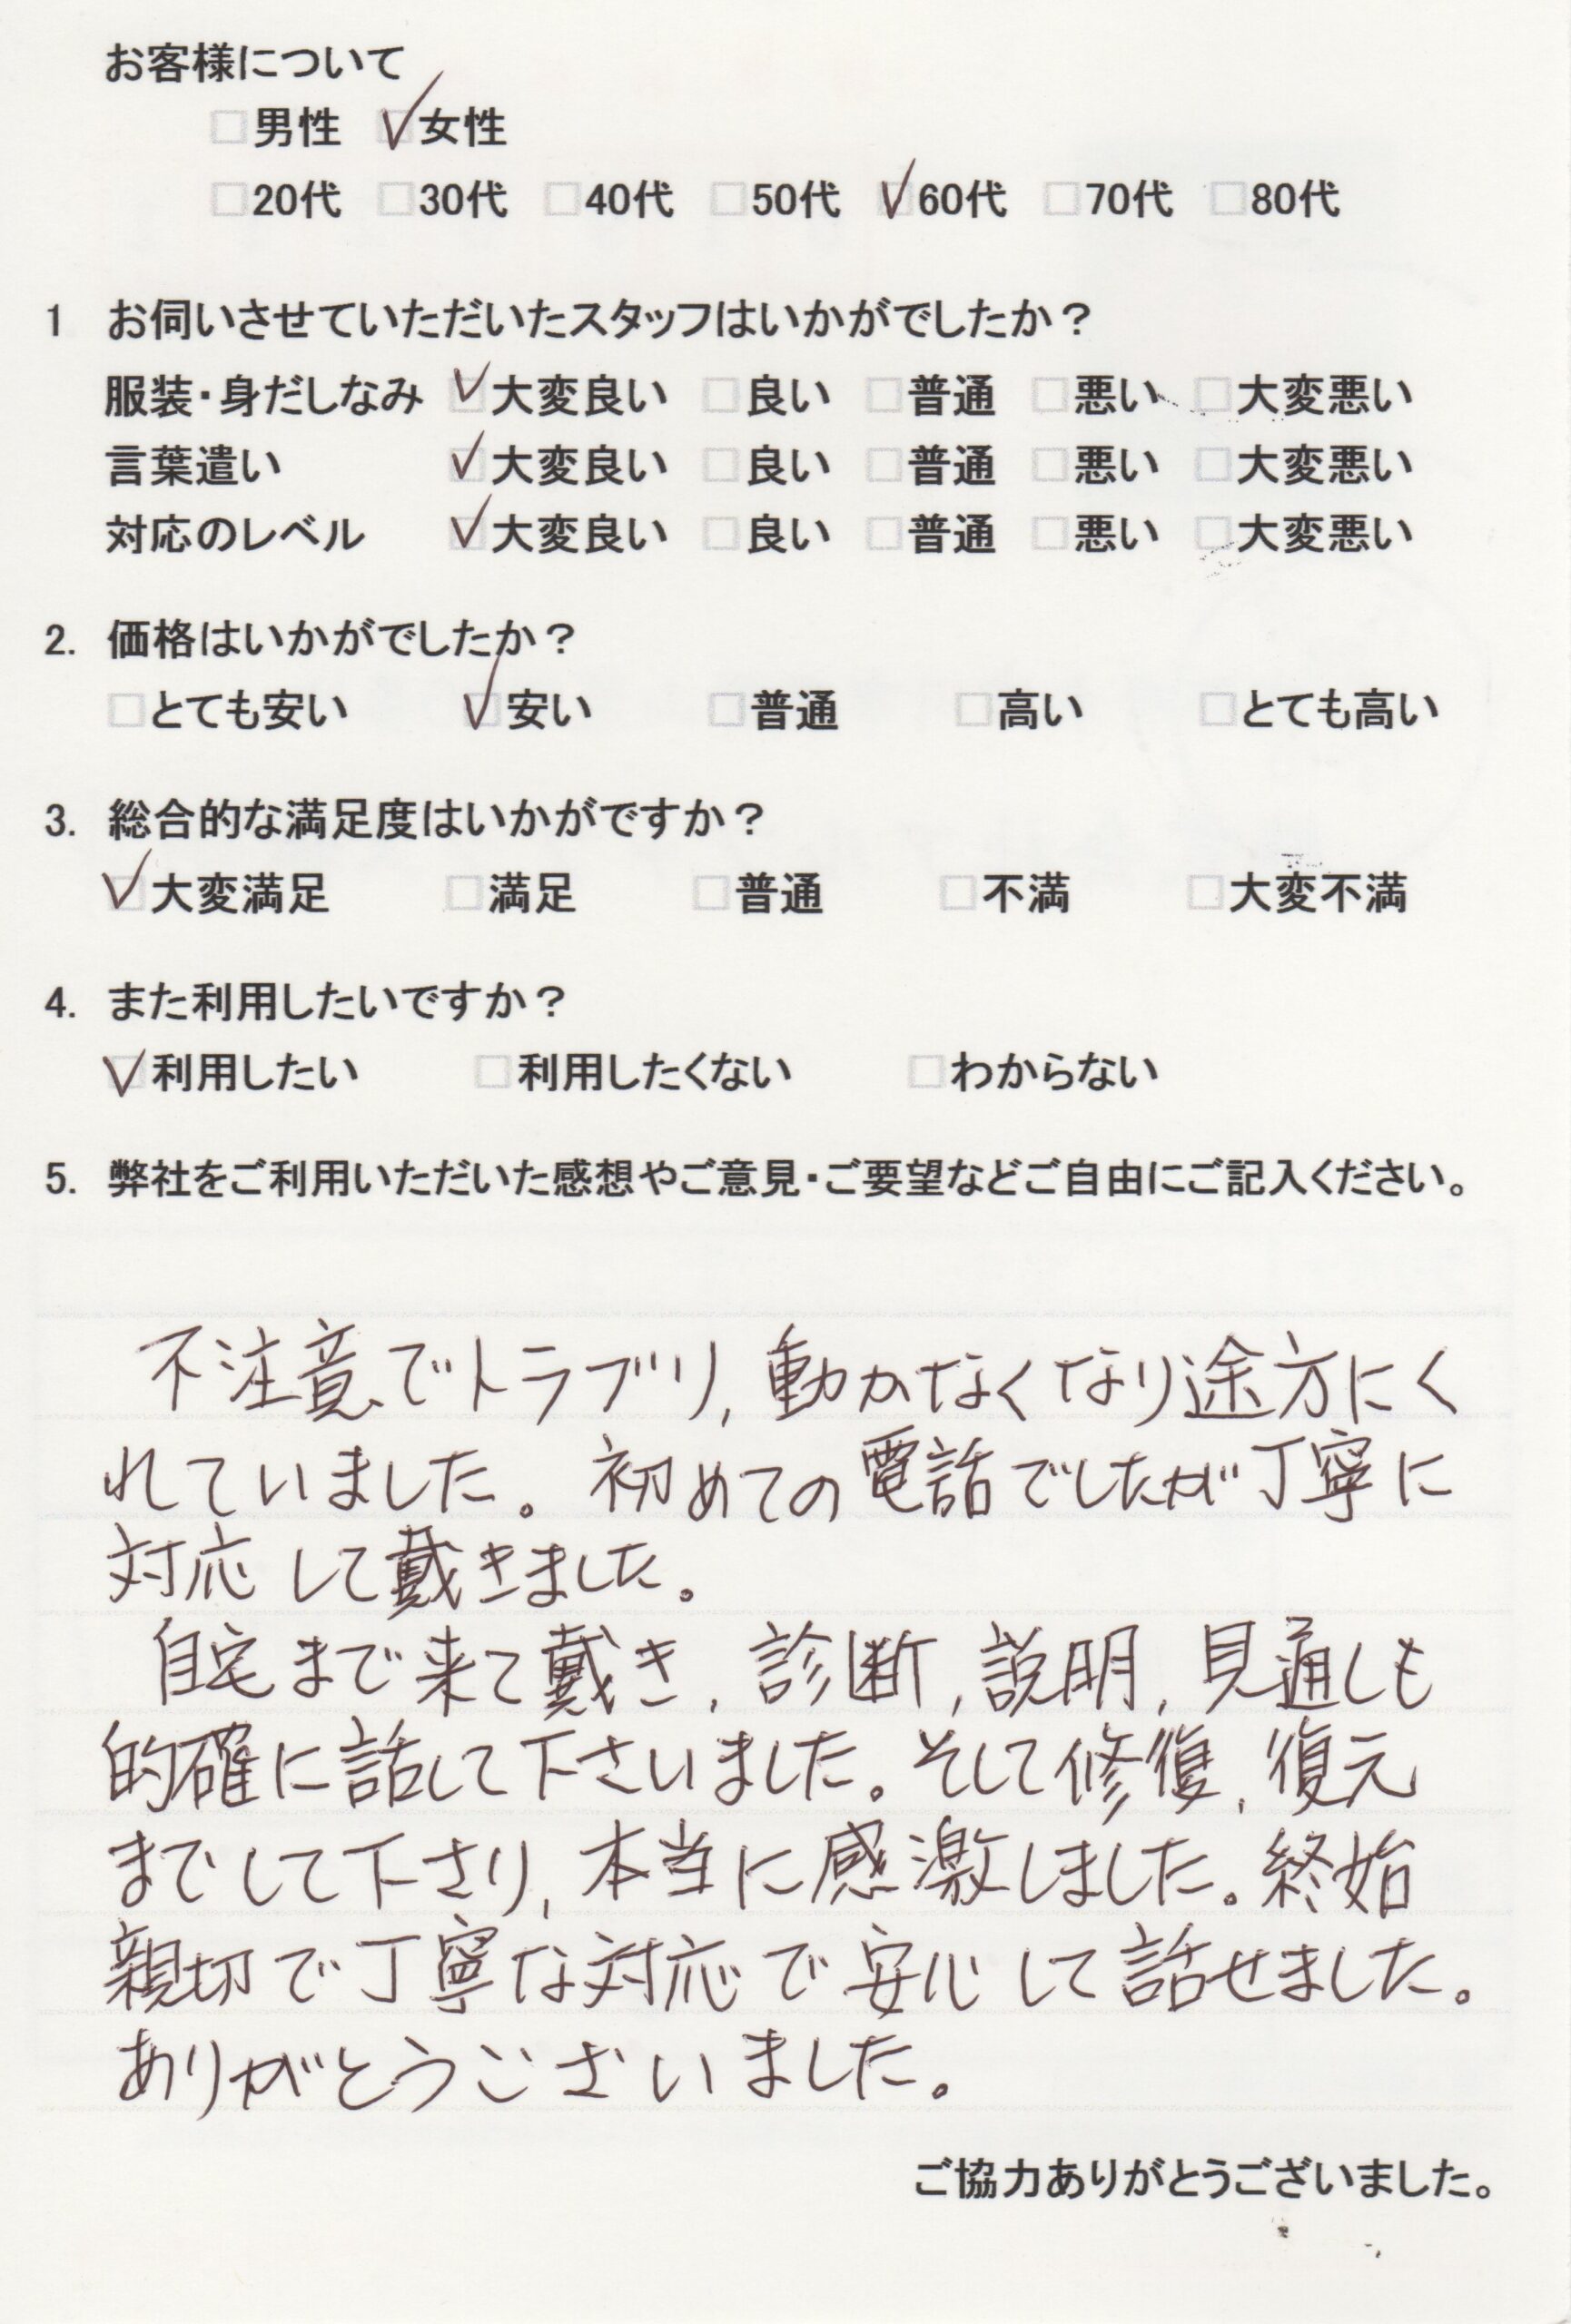 お客様について
□男性 ☑女性
□20代 □30代 □40代 □50代 ☑60代 □70代 □80代
1 お伺いさせていただいたスタッフはいかがでしたか?
服装・身だしなみ ☑大変良い □良い □普通 □悪い □大変悪い
言葉遣い ☑大変良い □良い □普通 □悪い □大変悪い
対応のレベル ☑大変良い □良い □普通 □悪い □大変悪い
2. 価格はいかがでしたか?
□とても安い ☑安い □普通 □高い □とても高い
3. 総合的な満足度はいかがですか?
☑大変満足 □満足 □普通 □不満 □大変不満
4. また利用したいですか?
☑利用したい □利用したくない □わからない
5. 弊社をご利用いただいた感想やご意見・ご要望などご自由にご記入ください。
不注意でトラブリ,動かなくなり途方にく
れていました。初めての電話でしたが丁寧に
対応して戴きました。
自宅まで来て戴き,診断,説明,見通しも
的確に話して下さいました。そして修復,復元
までして下さり,本当に感激しました。終始
親切で丁寧な対応で安心して話せました。
ありがとうございました。
ご協力ありがとうございました。